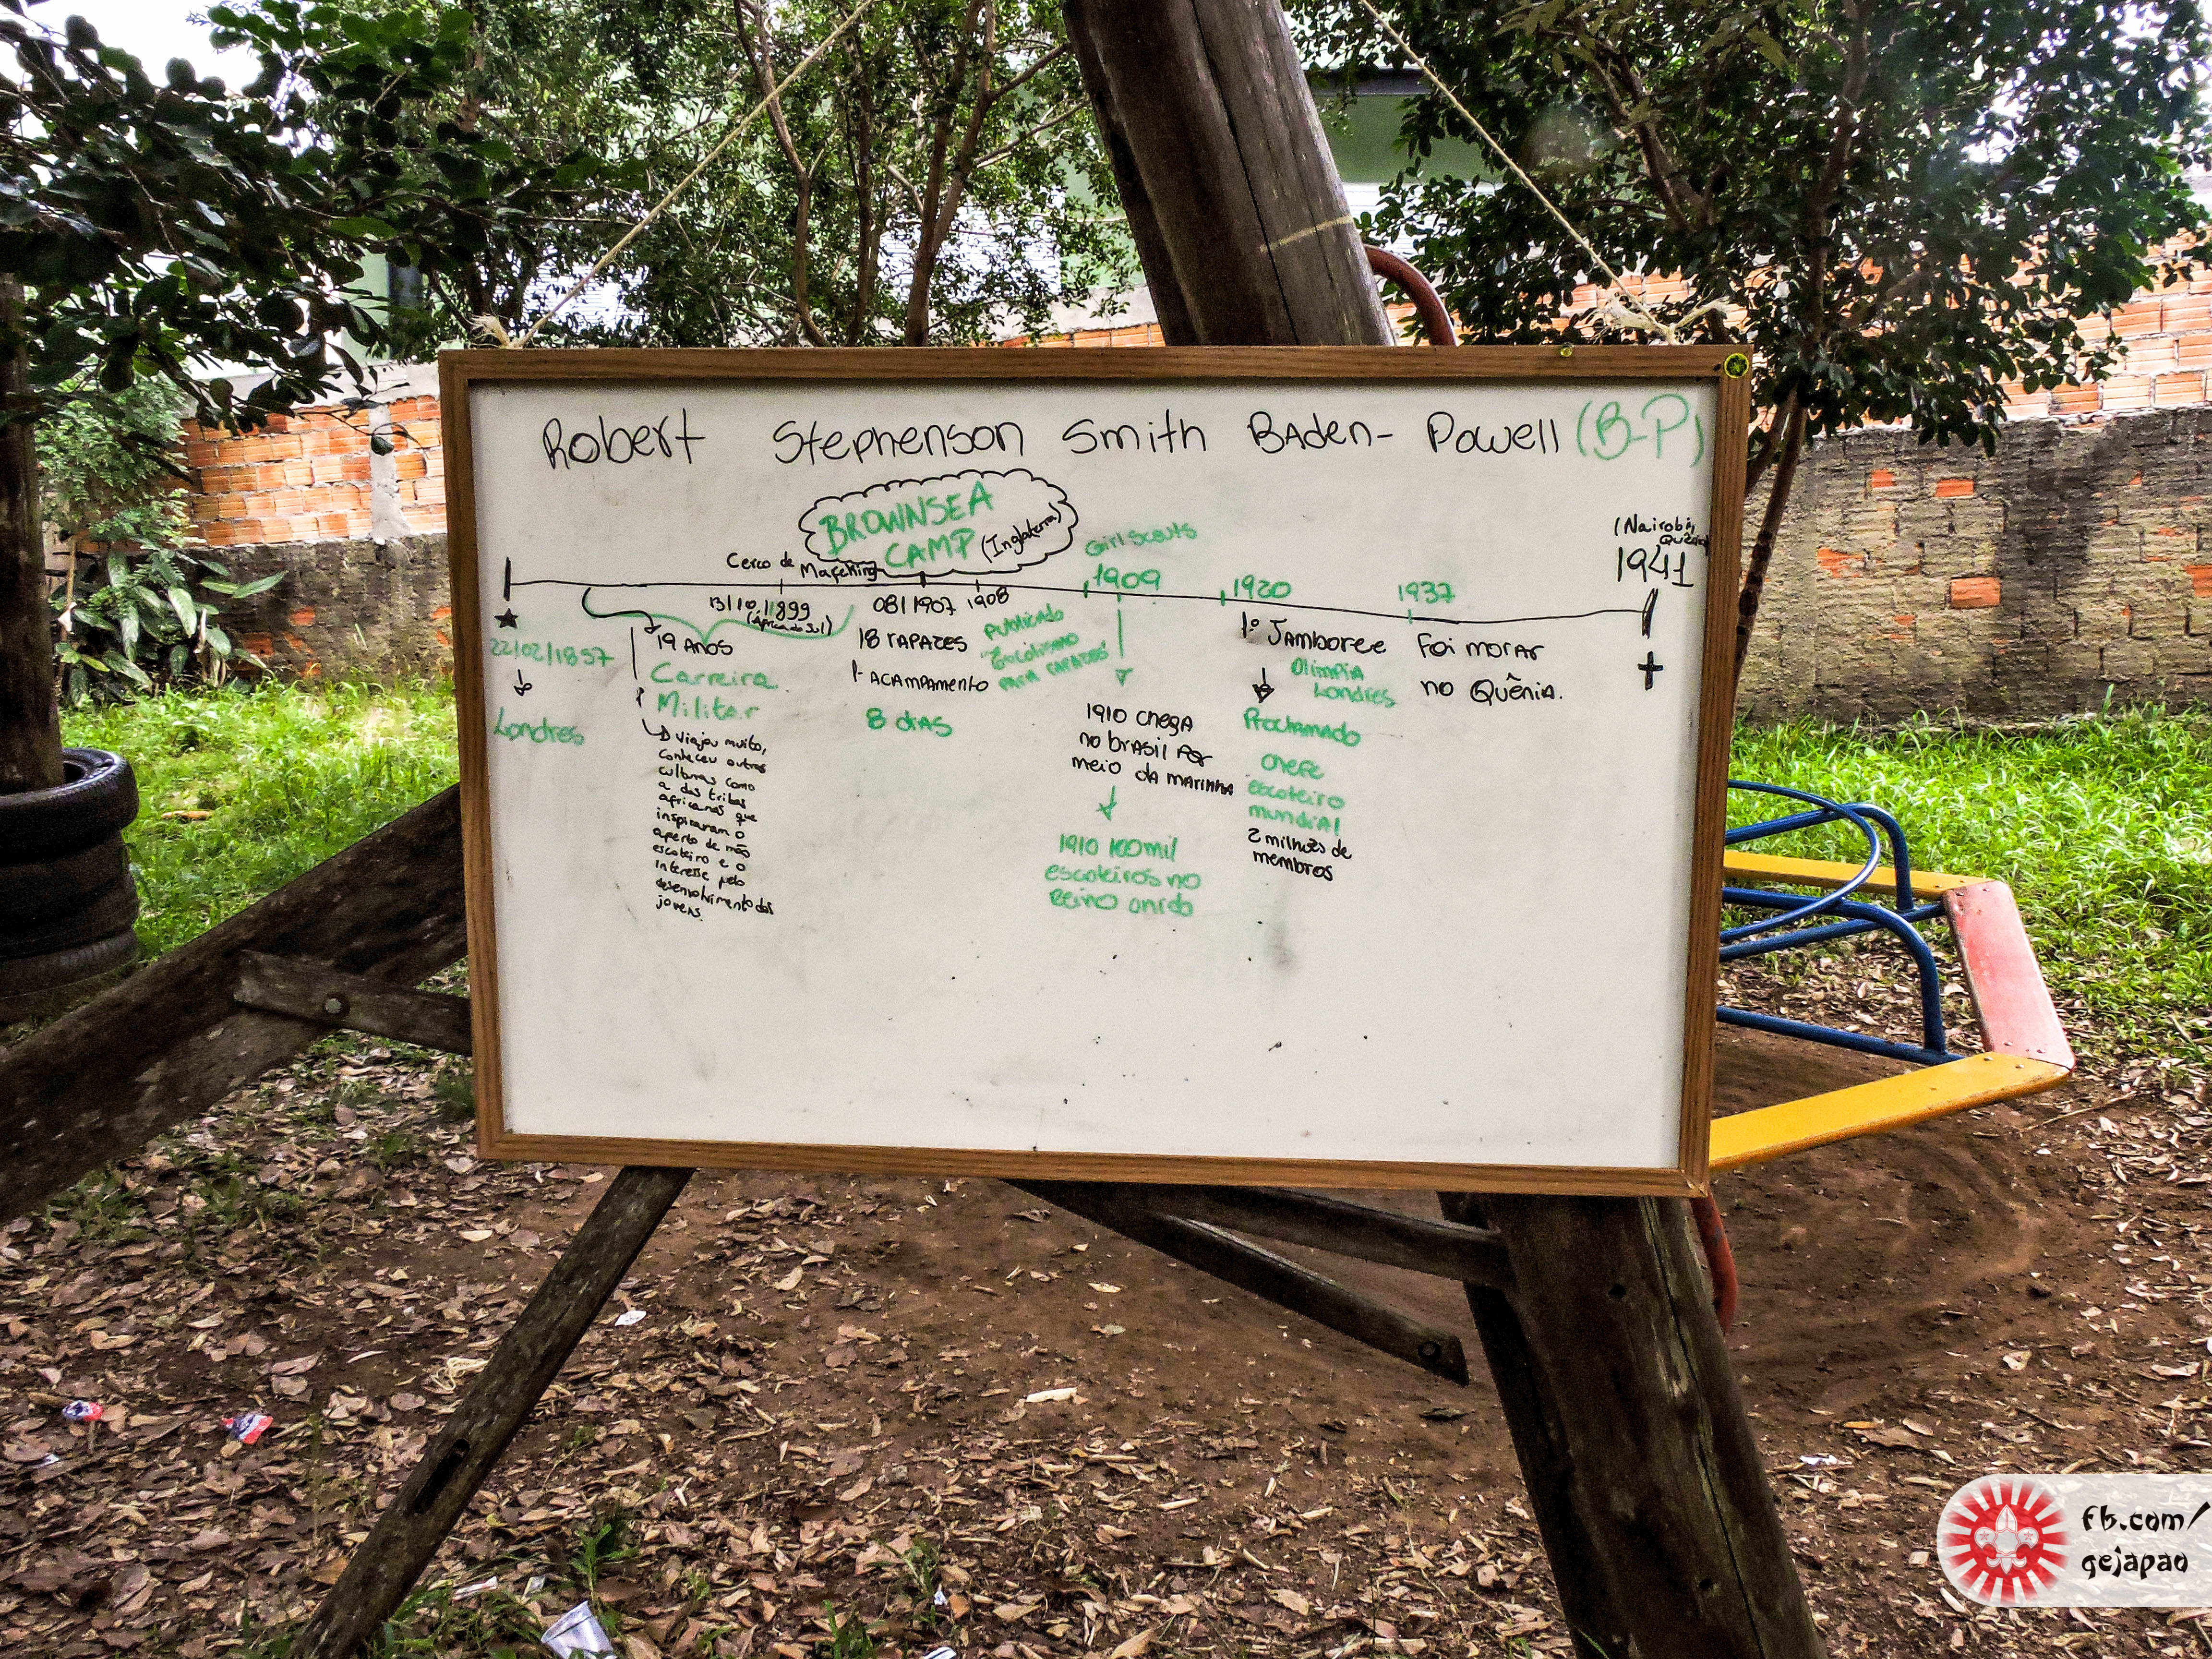 Robert Stephenson Smith Baden-Powell (B-P)
BROWNSEA
CAMP (Inglaterra)
Cerco de Mafeking
Girl Scouts
(Nairobi, Quênia)
1941
22/02/1857
Londres
19 ANOS
Carreira
Militar
Viajou muito,
conheceu outras
culturas como
a das tribos
africanas que
inspiraram o
aperto de mão
escoteiro e o
interesse pelo
desenvolvimento dos
jovens.
13/10/1899
(África do Sul)
08/1907
18 rapazes
1º ACAMPAMENTO
8 dias
1908
Publicado
"Escotismo
para rapazes"
1909
1910 chega
no brasil por
meio da marinha
1910 100mil
escoteiros no
Reino unido
1920
1º JAMBOREE
Olimpia
Londres
Proclamado
chefe
escoteiro
mundial
2 milhões de
membros
1937
Foi morar
no Quênia.
fb.com/
gejapao